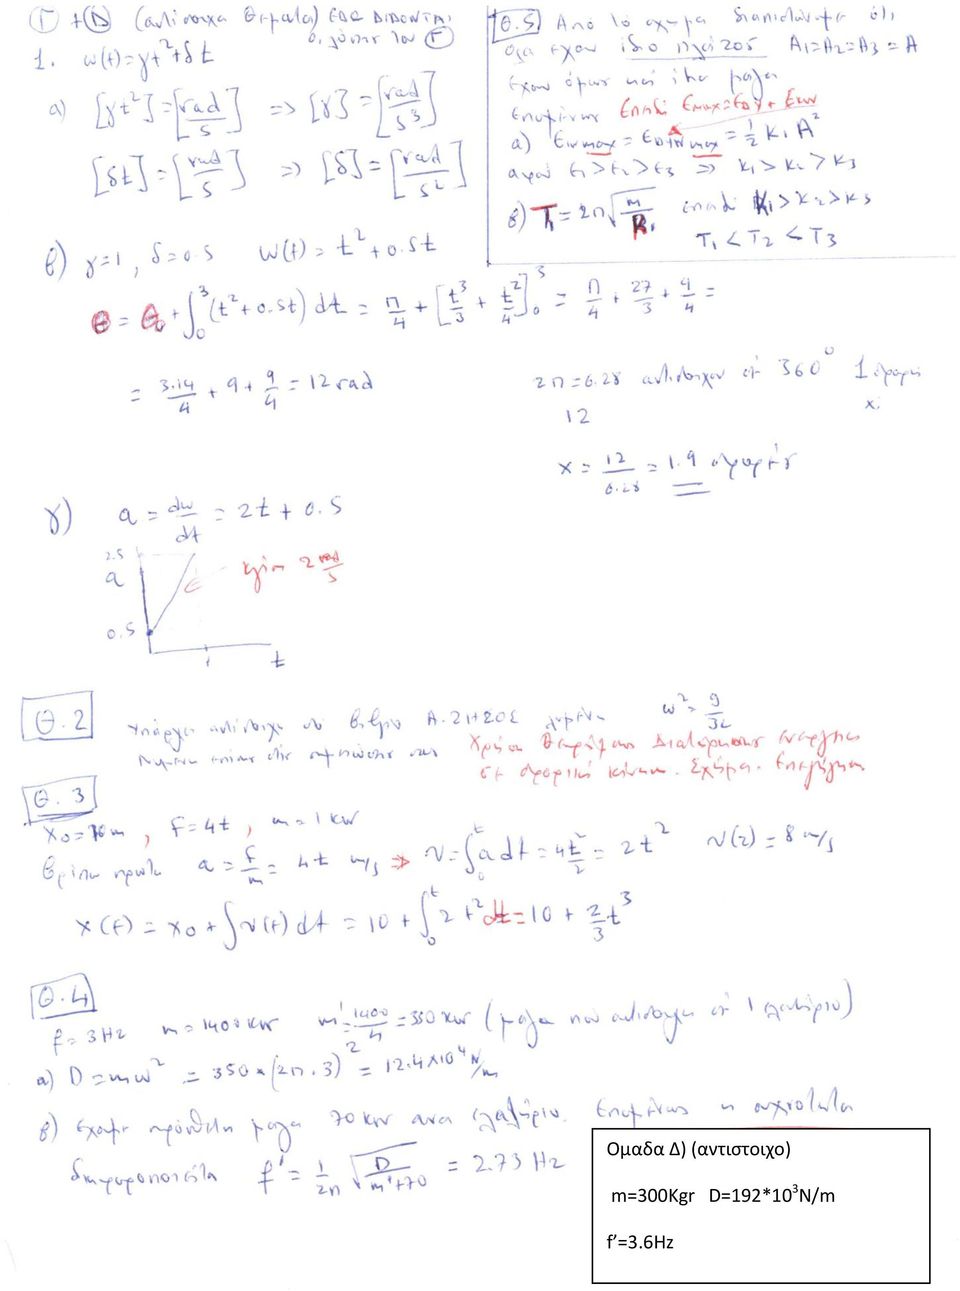 Γ + Δ (αντίστοιχα θέματα) ΕΔΩ ΔΙΔΟΝΤΑΙ
οι λύσεις του Γ
1. ω(t)=γt²+δt
α) [γt²]=[rad/s] => [γ]=[rad/s³]
[δt]=[rad/s] => [δ]=[rad/s²]
β) γ=1, δ=0.5 ω(t)= t²+0.5t
θ = θ₀ + ∫₀³(t²+0.5t) dt = π/4 + [t³/3 + t²/4]₀³ = π/4 + 27/3 + 9/4 =
= 3.14/4 + 9 + 9/4 = 12 rad
2π=6.28 αντιστοιχούν σε 360° 1 στροφή
12 x;
x = 12/6.28 = 1.9 στροφές
γ) a = dω/dt = 2t + 0.5
2.5
a
κλίση 2 rad/s
0.5
1
t
Θ.5 Από το σχήμα διαπιστώνουμε ότι
όλα έχουν ίδιο πλάτος A₁=A₂=A₃=A
έχουν όμως και ίδια μάζα
Επομένως Επειδή Εmax=Εδυν+Εκιν
α) Εκιν max = Εδυν max = ½ K₁ A²
αφού Ε₁>Ε₂>Ε₃ => K₁>K₂>K₃
β) T₁=2π√(m/K₁) επειδή K₁>K₂>K₃
T₁<T₂<T₃
Θ.2 Υπάρχει αντίστοιχο στο βιβλίο Α. ΖΗΣΟΣ λυμένο ω²= g/3L
λυμένο επίσης στις σημειώσεις σας Χρήση Θεωρήματος Διατήρησης ενέργειας
σε στροφική κίνηση. Σχήμα. Επεξήγηση
Θ. 3
x₀=10m, F=4t, m=1 kgr
βρίσκω πρώτα a = F/m = 4t m/s => v=∫₀ᵗ a dt = 4t²/2 = 2t² v(2)=8 m/s
x(t) = x₀ + ∫v(t) dt = 10 + ∫₀ᵗ 2t² dt = 10 + 2/3 t³
Θ.4
f=3Hz m=1400 kgr m'=1400/4=350 kgr (μάζα που αντιστοιχεί σε 1 ελατήριο)
α) D=mω² = 350×(2π.3)² = 12.4×10⁴ N/m
β) έχουμε πρόσθετη μάζα 70 kgr ανά ελατήριο. Επομένως η συχνότητα
διαμορφοποιείται f' = 1/2π √(D/m'+70) = 2.73 Hz
Ομαδα Δ) (αντιστοιχο)
m=300Kgr D=192*10³N/m
f'=3.6Hz